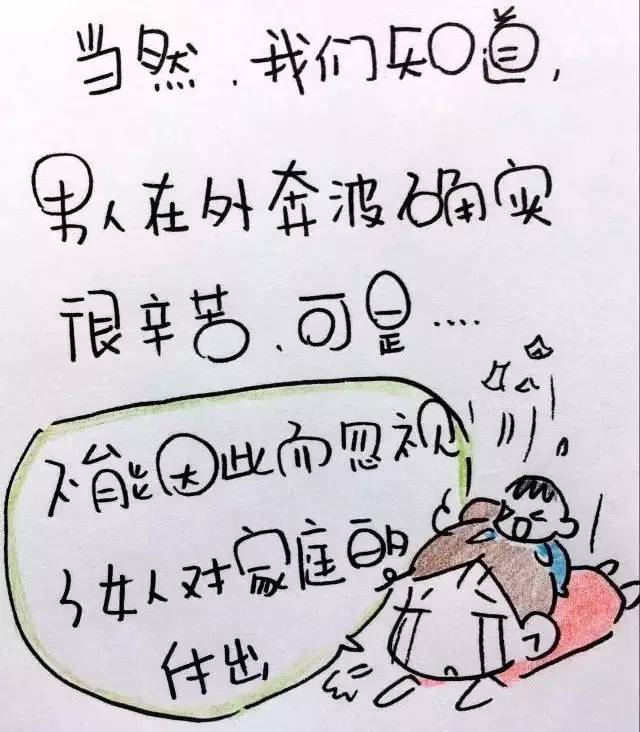 当然,我们知道,
男人在外奔波确实
很辛苦,可是....
不能因此而忽视
了女人对家庭的
付出